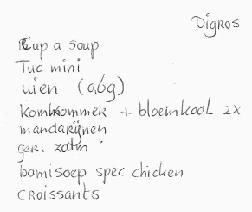 Digros
Cup a soup
Tuc mini
wien (abg)
komkommer + bloemkool 2x
mandarijnen
ger. zalm
bamisoep spec chicken
croissants